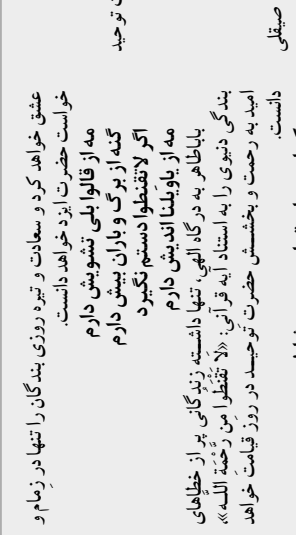 عشق خواهد کرد و سعادت و تیره روزی بندگان را تنها در زمام و
خواست حضرت ایزد خواهد دانست.
مه از قالوا بلی تشویش دارم
گنه از برگ و باران بیش دارم
اگر لاتقنطوا دستم نگیرد
مه از یاوَیلنا اندیش دارم
باباطاهر به درگاه الهی، تنها داشته زندگانی پر از خطاهای
بندگی دنیوی را به استناد آیه قرآنی: «لَا تَقْنَطُوا مِن رَّحْمَةِ اللَّه»،
امید به رحمت و بخشش حضرت توحید در روز قیامت خواهد
دانست.
توحید
صیقلی